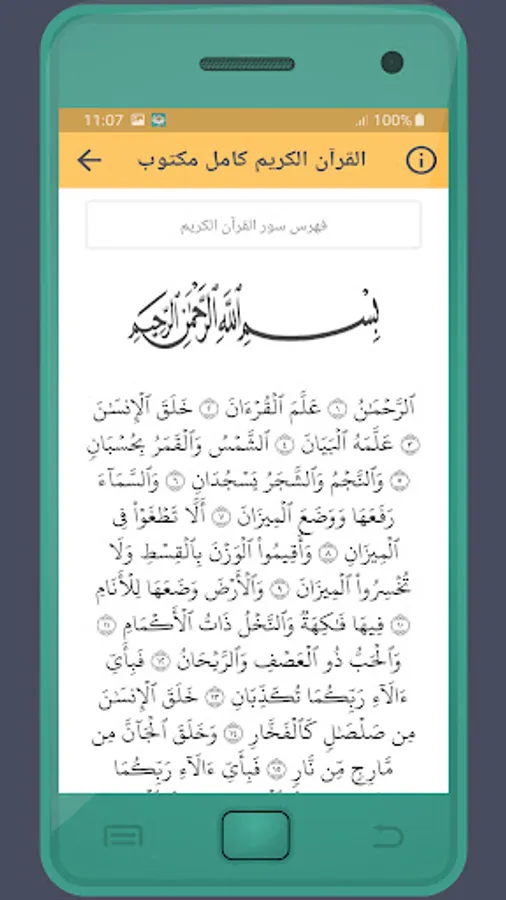 11:07 100%
القرآن الكريم كامل مكتوب
فهرس سور القرآن الكريم
بِسْمِ ٱللَّهِ ٱلرَّحْمَٰنِ ٱلرَّحِيمِ
ٱلرَّحْمَٰنُ ١ عَلَّمَ ٱلْقُرْءَانَ ٢ خَلَقَ ٱلْإِنسَٰنَ
٣ عَلَّمَهُ ٱلْبَيَانَ ٤ ٱلشَّمْسُ وَٱلْقَمَرُ بِحُسْبَانٍ
٥ وَٱلنَّجْمُ وَٱلشَّجَرُ يَسْجُدَانِ ٦ وَٱلسَّمَآءَ
رَفَعَهَا وَوَضَعَ ٱلْمِيزَانَ ٧ أَلَّا تَطْغَوْا۟ فِى
ٱلْمِيزَانِ ٨ وَأَقِيمُوا۟ ٱلْوَزْنَ بِٱلْقِسْطِ وَلَا
تُخْسِرُوا۟ ٱلْمِيزَانَ ٩ وَٱلْأَرْضَ وَضَعَهَا لِلْأَنَامِ
١٠ فِيهَا فَٰكِهَةٌ وَٱلنَّخْلُ ذَاتُ ٱلْأَكْمَامِ ١١
وَٱلْحَبُّ ذُو ٱلْعَصْفِ وَٱلرَّيْحَانُ ١٢ فَبِأَىِّ
ءَالَآءِ رَبِّكُمَا تُكَذِّبَانِ ١٣ خَلَقَ ٱلْإِنسَٰنَ
مِن صَلْصَٰلٍ كَٱلْفَخَّارِ ١٤ وَخَلَقَ ٱلْجَآنَّ مِن
مَّارِجٍ مِّن نَّارٍ ١٥ فَبِأَىِّ ءَالَآءِ رَبِّكُمَا